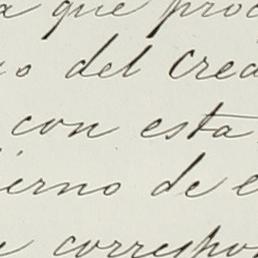 a que pro
o del crea
con esta
ierno de e
e correspo